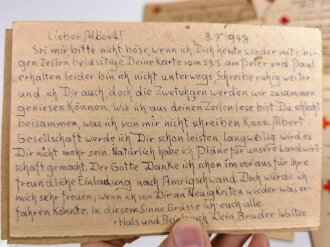 Lieber Albert! 8.7.1948
Sei mir bitte nicht böse, wenn ich Dich heute wieder mit eini-
gen Zeilen belästige. Deine Karte vom 29.6. am Peter und Paul
erhalten leider bin ich nicht unterwegs. Schreibe ruhig weiter
und ich Dir auch, doch die Zwetschgen werden wir zusammen
geniesen können. Wie ich aus deinen Zeilen lese bist Du schlecht
beisammen, was ich von mir nicht schreiben kann. Albert
Gesellschaft werde ich Dir schon leisten, langweilig wird es
Dir nicht mehr sein. Natürlich habe ich Pläne für unsere Landwirt-
schaft gemacht. Der Gotte Danke ich schon im voraus für ihre
freundliche Einladung nach Amrigschwand. Doch würde ich
mich sehr freuen, wenn ich von Dir an Neuigkeiten wieder was er-
fahren könnte. In diesem Sinne Grüsse ich euch alle.
Hals und Beinbruch Dein Bruder Walter